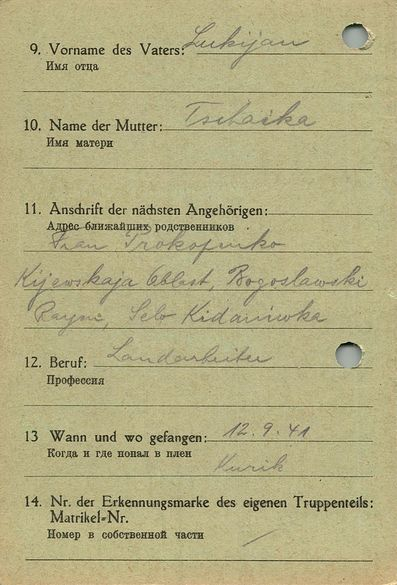 9. Vorname des Vaters: Lukijan
Имя отца
10. Name der Mutter: Tschaika
Имя матери
11. Anschrift der nächsten Angehörigen:
Адрес ближайших родственников
Frau Prokopenko
Kijewskaja Oblast, Bogoslawski
Rayne, Selo Kidaniwka
12. Beruf: Landarbeiter
Профессия
13 Wann und wo gefangen: 12.9.41
Когда и где попал в плен
14. Nr. der Erkennungsmarke des eigenen Truppenteils:
Matrikel-Nr.
Номер в собственной части /